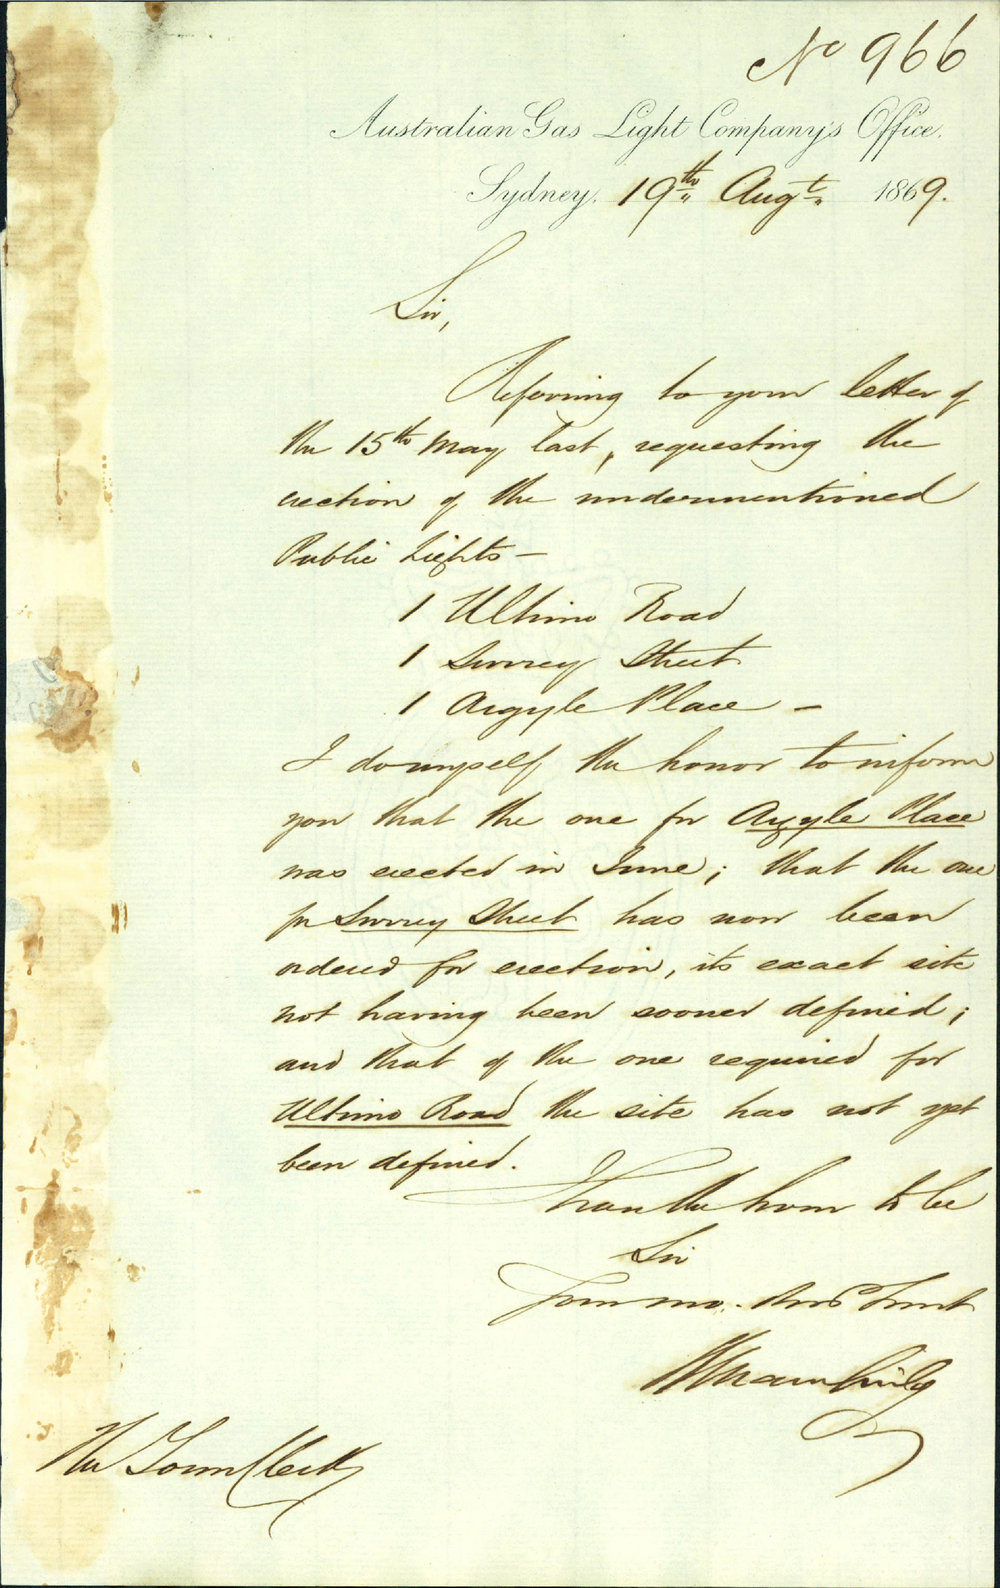 No 966
Australian Gas Light Company's Office.
Sydney, 19th Augt. 1869.
Sir,
Referring to your letter of
the 15th May last, requesting the
erection of the undermentioned
Public Lights —
1 Ultimo Road
1 Surrey Street
1 Argyle Place —
I do myself the honor to inform
you that the one for Argyle Place
was erected in June; that the one
for Surrey Street has now been
ordered for erection, its exact site
not having been sooner defined;
and that of the one required for
Ultimo Road the site has not yet
been defined.
I have the honor to be
Sir
Your mo. Obdt Servt
The Town Clerk